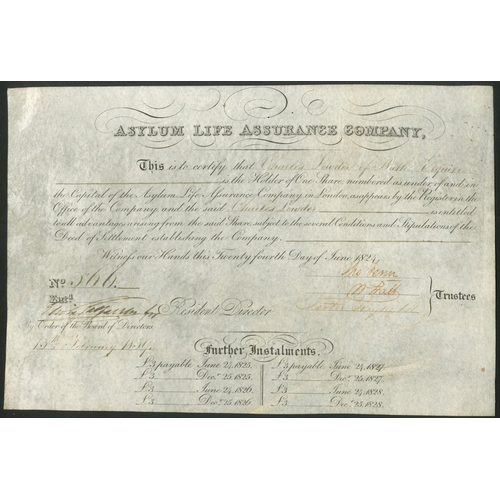 ASYLUM LIFE ASSURANCE COMPANY,
This is to certify that Charles Lowder of Bath Esquire
is the Holder of One Share numbered as under of and in
the Capital of the Asylum Life Assurance Company in London, as appears by the Register in the
Office of the Company and the said Charles Lowder is entitled
to all advantages arising from the said Share, subject to the several Conditions and Stipulations of the
Deed of Settlement establishing the Company.
Witness our Hands this Twenty fourth Day of June 1824
No. 366
Entd.
Resident Director
Trustees
By Order of the Board of Directors
February
Further Instalments.
£3 payable June 24, 1825. £3 payable June 24, 1827.
£3 Decr. 25, 1825. £3 Decr. 25, 1827.
£3 June 24, 1826. £3 June 24, 1828.
£3 Decr. 25, 1826. £3 Decr. 25, 1828.